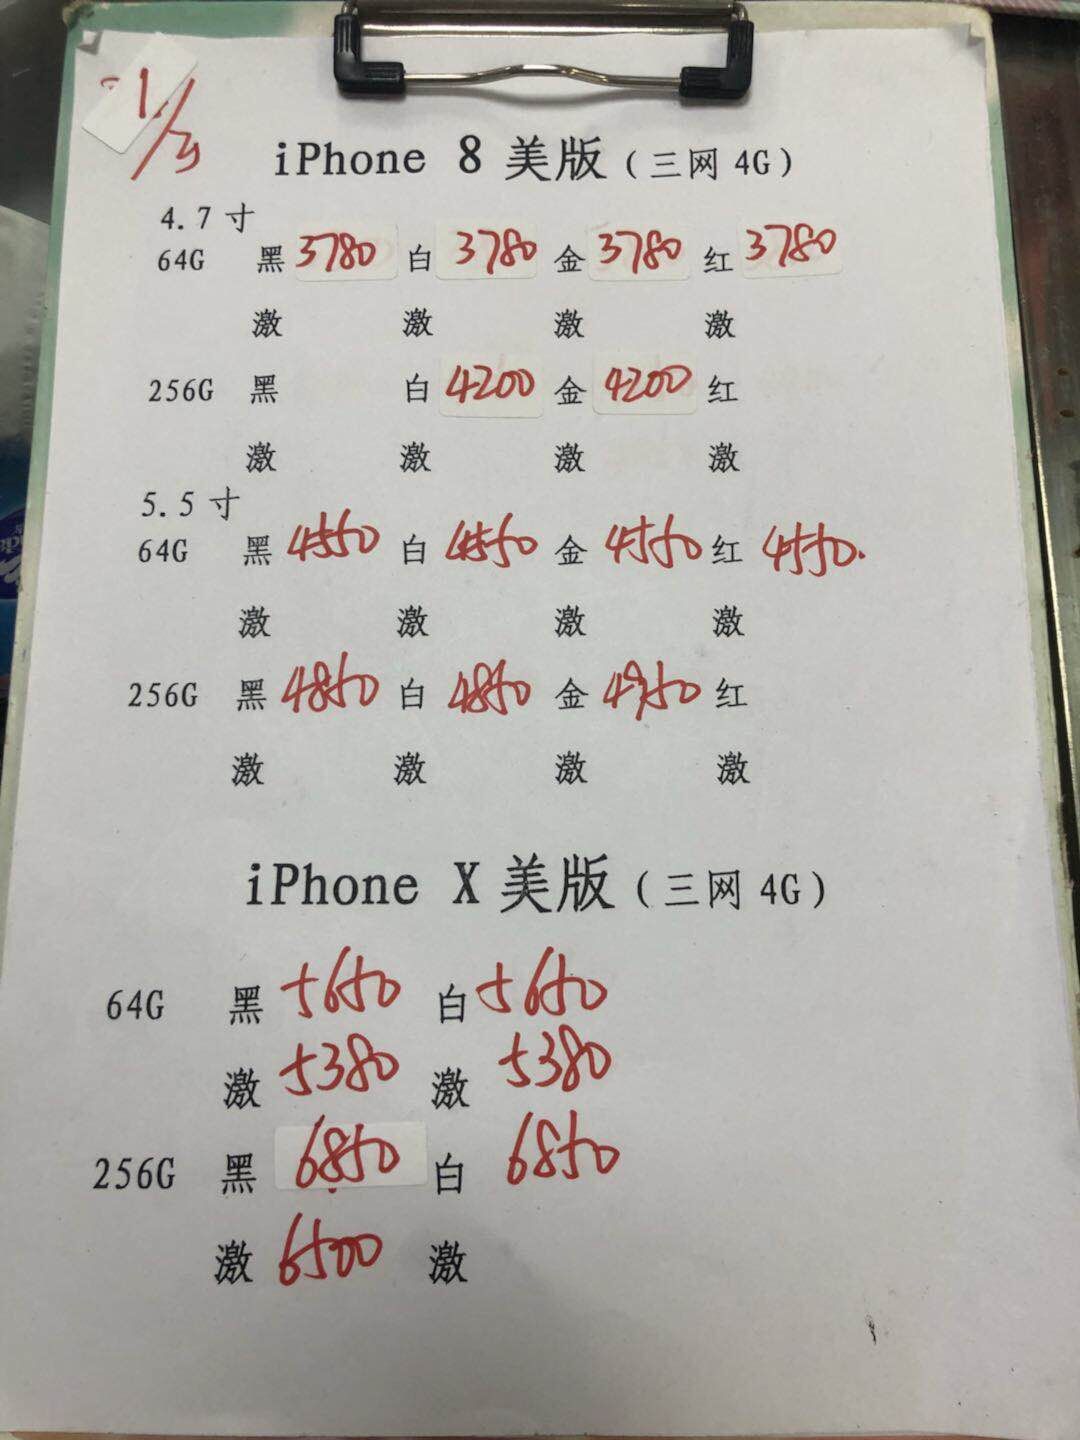 iPhone 8 美版(三网 4G)
4.7 寸
64G 黑 3780 白 3780 金 3780 红 3780
激 激 激 激
256G 黑 白 4200 金 4200 红
激 激 激 激
5.5 寸
64G 黑 4550 白 4550 金 4550 红 4550.
激 激 激 激
256G 黑 4850 白 4850 金 4950 红
激 激 激 激
iPhone X 美版(三网 4G)
64G 黑 5650 白 5650
激 5380 激 5380
256G 黑 6850 白 6850
激 6500 激